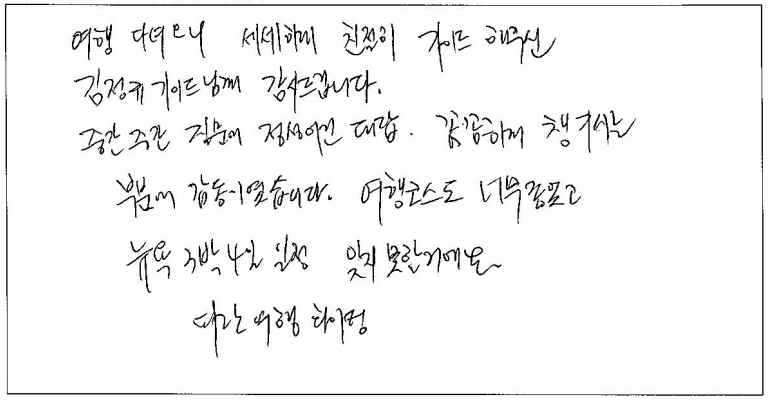 여행 다녀오니 세세하며 친절히 가이드 해주신
김정규 가이드님께 감사드립니다.
중간중간 질문에 정성어린 대답. 꼼꼼하게 챙겨주시는
부분에 감동이였습니다. 여행코스도 너무좋았고
뉴욕 3박 4일 일정 잊지 못할거에요
여행 화이팅